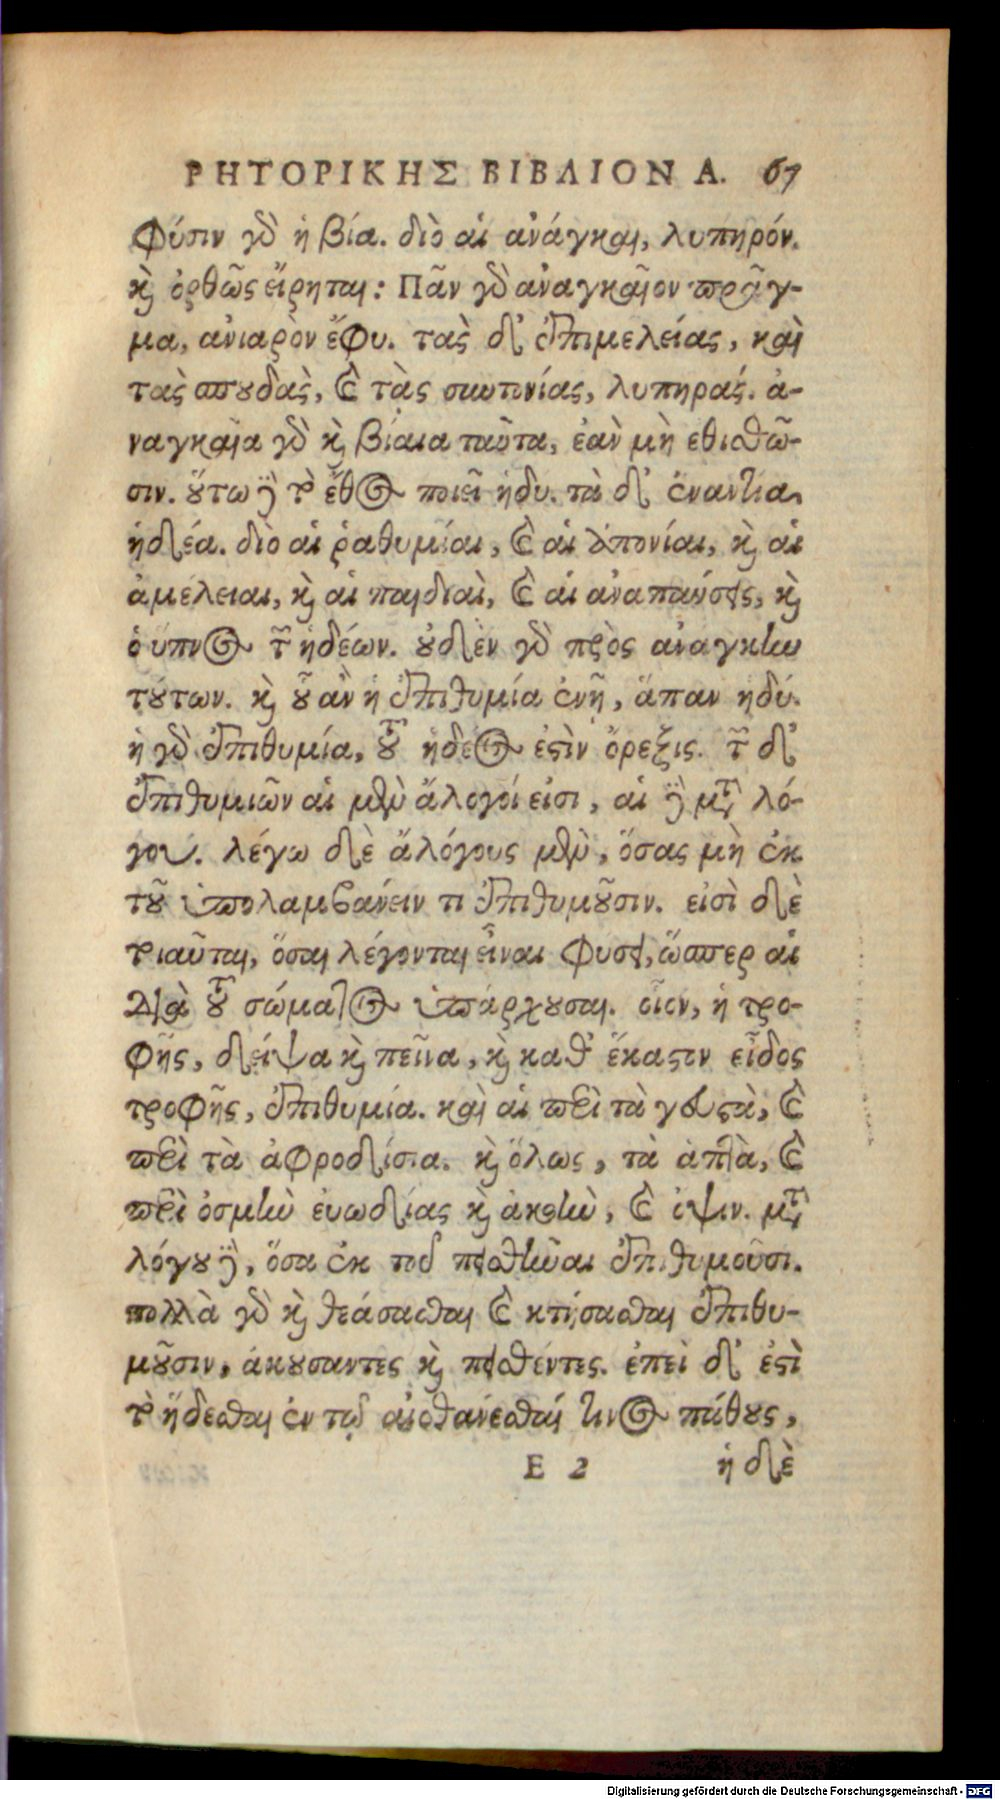 ΡΗΤΟΡΙΚΗΣ ΒΙΒΛΙΟΝ Α. 67
φύσιν γὰρ ἡ βία. διὸ αἱ ἀνάγκαι, λυπηρόν.
καὶ ὀρθῶς εἴρηται: Πᾶν γὰρ ἀναγκαῖον πρᾶγ-
μα, ἀνιαρὸν ἔφυ. τὰς δ' ἐπιμελείας, καὶ
τὰς σπουδὰς, καὶ τὰς συντονίας, λυπηράς. ἀ-
ναγκαῖα γὰρ καὶ βίαια ταῦτα, ἐὰν μὴ εθισθῶ-
σιν. οὕτω δὲ τὸ ἔθος ποιεῖ ἡδυ. τὰ δ' ἐναντία
ἡδέα. διὸ αἱ ῥαθυμίαι, καὶ αἱ ἀπονίαι, καὶ αἱ
ἀμέλειαι, καὶ αἱ παιδιαὶ, καὶ αἱ ἀναπαύσεις, καὶ
ὁ ὕπνος τῶν ἡδέων. οὐδὲν γὰρ πρὸς ἀναγκην
τούτων. καὶ οὗ ἂν ἡ ἐπιθυμία ἐνῇ, ἅπαν ἡδύ.
ἡ γὰρ ἐπιθυμία, τοῦ ἡδέος ἐστὶν ὄρεξις. τῶν δ'
ἐπιθυμιῶν αἱ μὲν ἄλογοί εἰσι, αἱ δὲ μετὰ λό-
γου. λέγω δὲ ἀλόγους μὲν, ὅσας μὴ ἐκ
τοῦ ὑπολαμβάνειν τι ἐπιθυμοῦσιν. εἰσὶ δὲ
τοιαῦται, ὅσαι λέγονται εἶναι φυσει, ὥσπερ αἱ
διὰ τοῦ σώματος ὑπάρχουσαι. οἷον, ἡ τρο-
φῆς, δίψα καὶ πεῖνα, καὶ καθ' ἕκαστον εἶδος
τροφῆς, ἐπιθυμία. καὶ αἱ περὶ τὰ γευστὰ, καὶ
περὶ τὰ ἀφροδίσια. καὶ ὅλως, τὰ ἁπτὰ, καὶ
περὶ ὀσμὴν εὐωδίας καὶ ἀκοὴν, καὶ ὄψιν. μετὰ
λόγου δὲ, ὅσα ἐκ τοῦ πεισθῆναι ἐπιθυμοῦσι.
πολλὰ γὰρ καὶ θεάσασθαι καὶ κτήσασθαι ἐπιθυ-
μοῦσιν, ἀκούσαντες καὶ πεισθέντες. ἐπεὶ δ' ἐστὶ
τὸ ἥδεσθαι ἐν τῷ αἰσθάνεσθαί τινος πάθους,
Ε 2 ἡ δὲ
Digitalisierung gefördert durch die Deutsche Forschungsgemeinschaft - DFG